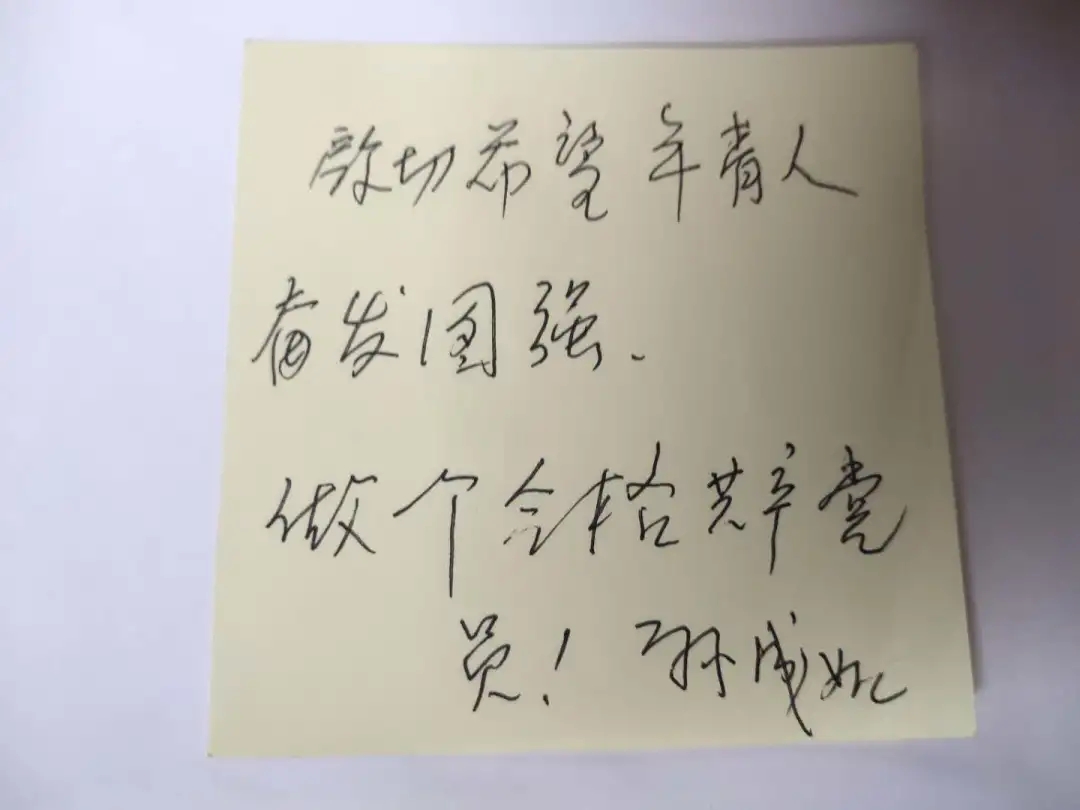 殷切希望年青人
奋发图强.
做个合格共产党
员! 孙成